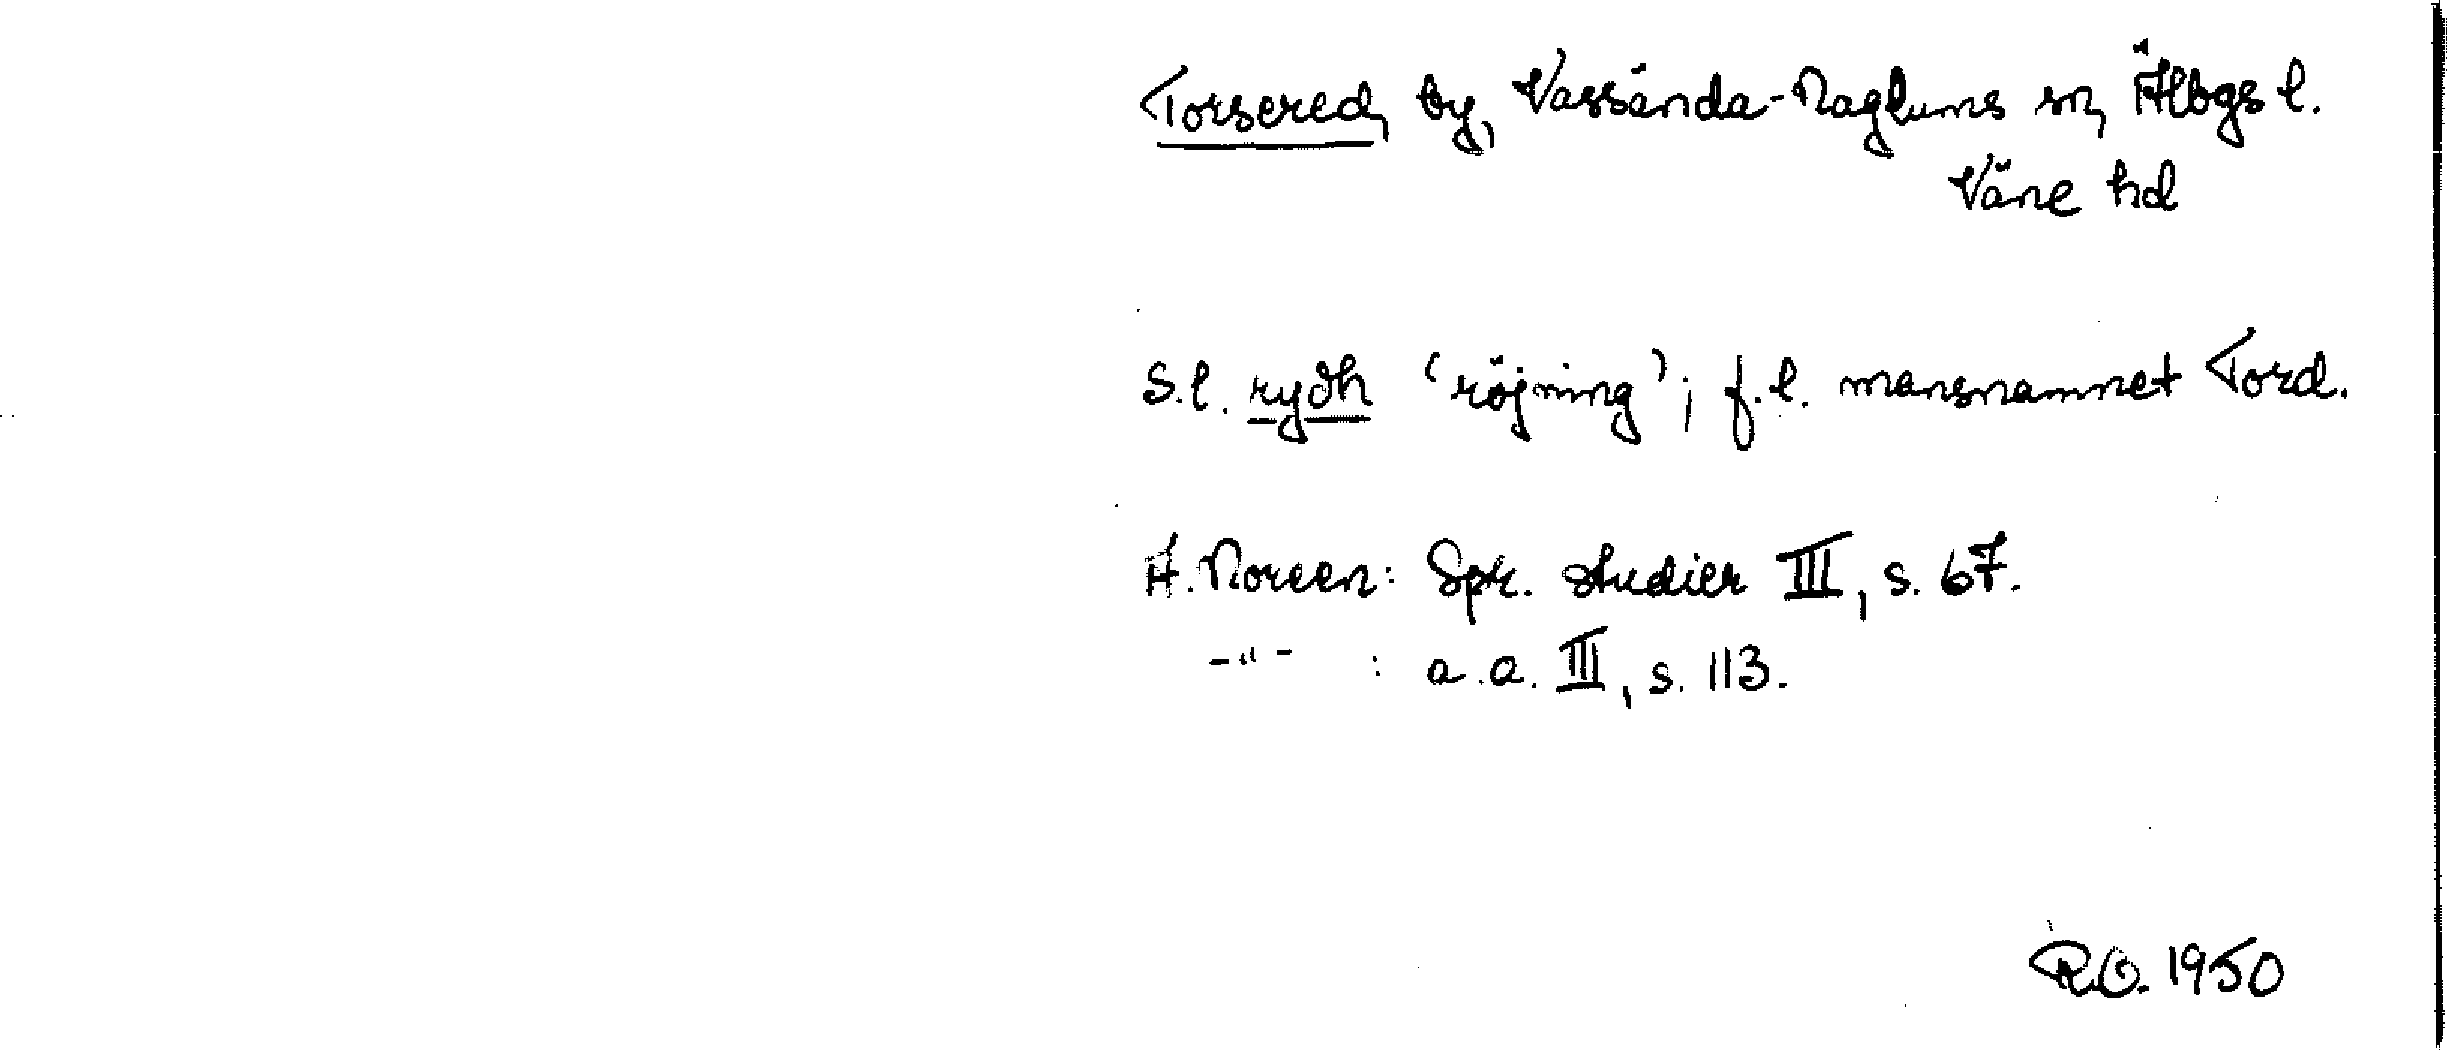 Torsered, by, Vassända-Naglums sn, Älbgs l.
Väne hd
S.l. rydh 'röjning'; f.l. mansnamnet Tord.
A. Noreen: Spr. studier III, s. 67.
-"- : a.a. III, s. 113.
R.O. 1950